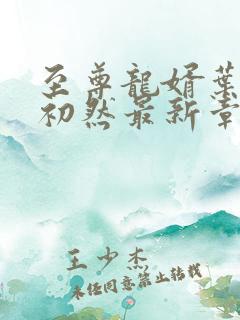 至尊龍婿葉
初然最新章
王少杰
未经同意禁止转载